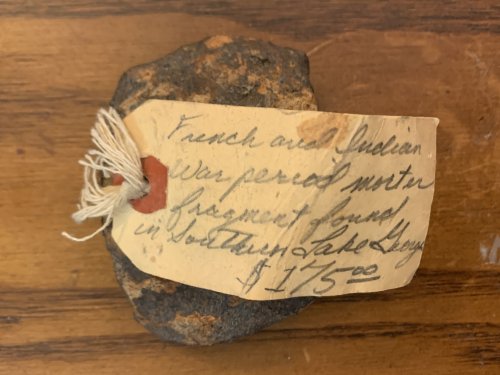 French and Indian
War period morter
fragment found
in Southern Lake George
$175.00